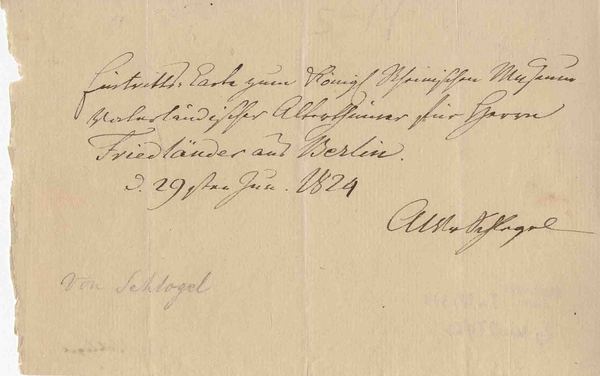 Eintritts-Karte zum Königl Rheinischen Museum
Vaterländischer Alterthümer für Herrn
Friedländer aus Berlin.
d. 29sten Jun. 1824
AWvSchlegel
Von Schlogel